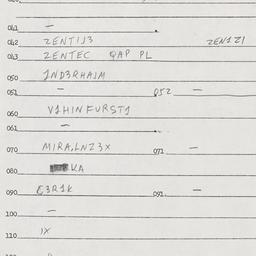 041 —
042 ZENTIJ3 ZEN1Z1
043 ZENTEC QAP PL
050 JND3RHAJM
051 — 052 —
060 V1HINFURST1
061 —
070 MIRA,LNZ3X 071 —
080 KA
090 C3R1K 091 —
100 —
110 IX